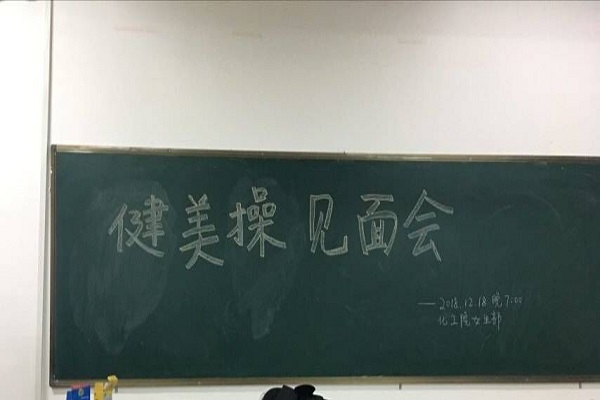 健美操见面会
—2018.12.18晚7:00
化工院女生部